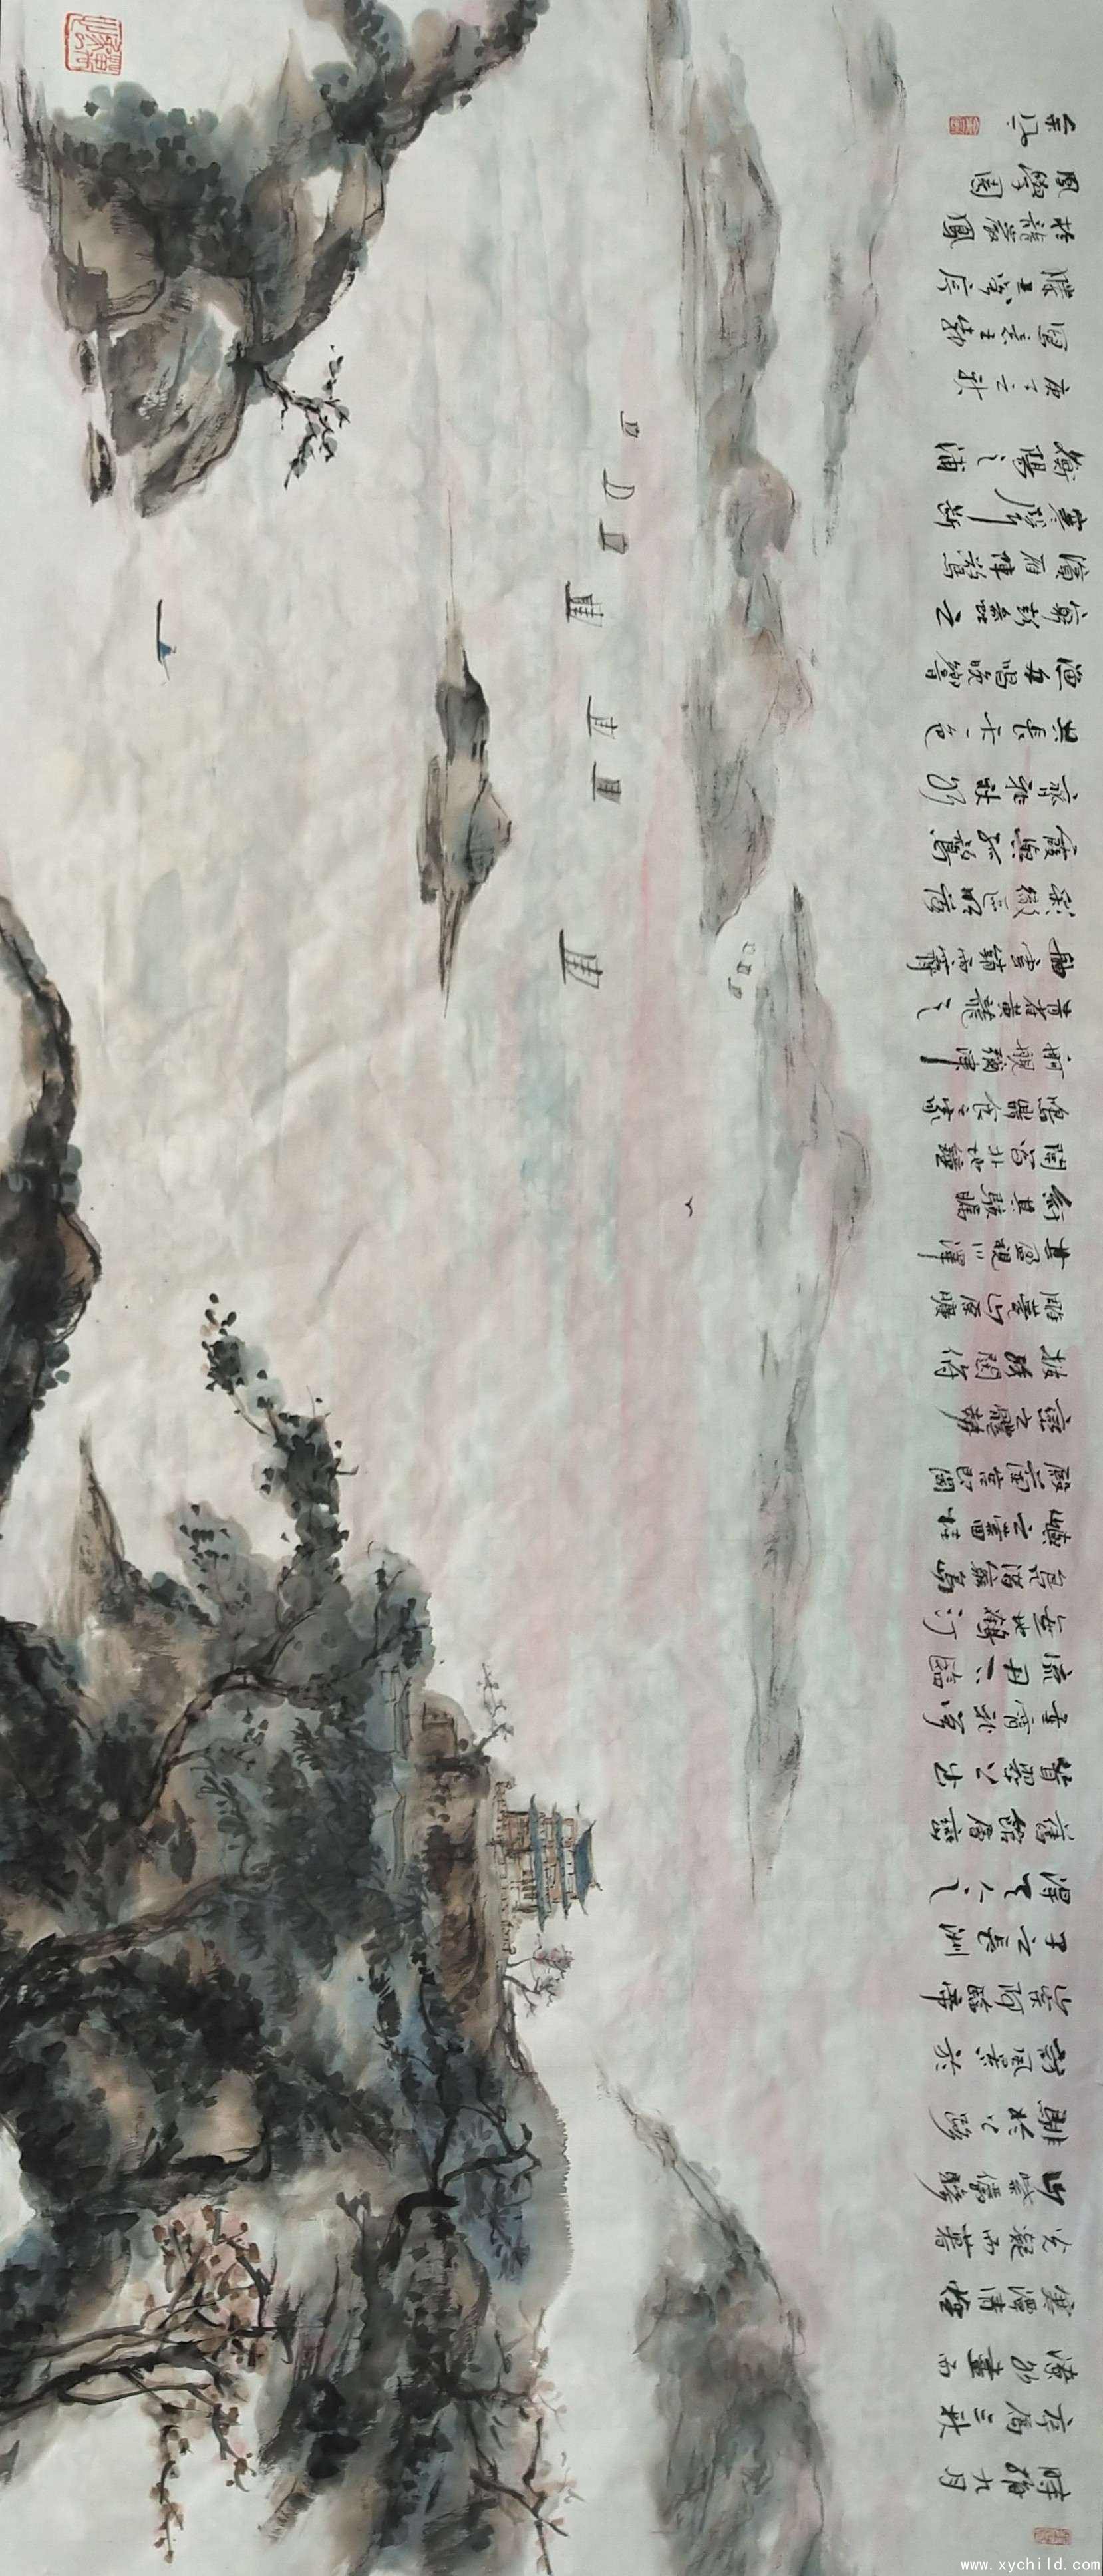 時維九月
序屬三秋
潦水盡而
寒潭清煙
光凝而暮
山紫儼驂
騑於上路
訪風景於
崇阿臨帝
子之長洲
得天人之
舊館層巒
聳翠上出
重霄飛閣
流丹下臨
無地鶴汀
鳧渚窮島
嶼之縈回桂
殿蘭宮即岡
巒之體勢
披繡闥俯
雕甍山原曠
其盈視川澤
紆其駭矚
閭閻扑地鐘
鳴鼎食之家
舸艦彌津
青雀黃龍之
舳雲銷雨霽
彩徹區明落
霞與孤鶩
齊飛秋水
共長天一色
漁舟唱晚響
窮彭蠡之
濱雁陣驚
寒聲斷
衡陽之浦
庚子之秋
圖意王勃
滕王閣序
於龍巖鳳
凰學園
www.xychild.com